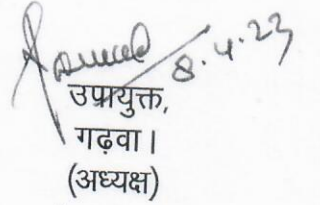 8.4.23
उपायुक्त,
गढ़वा।
(अध्यक्ष)